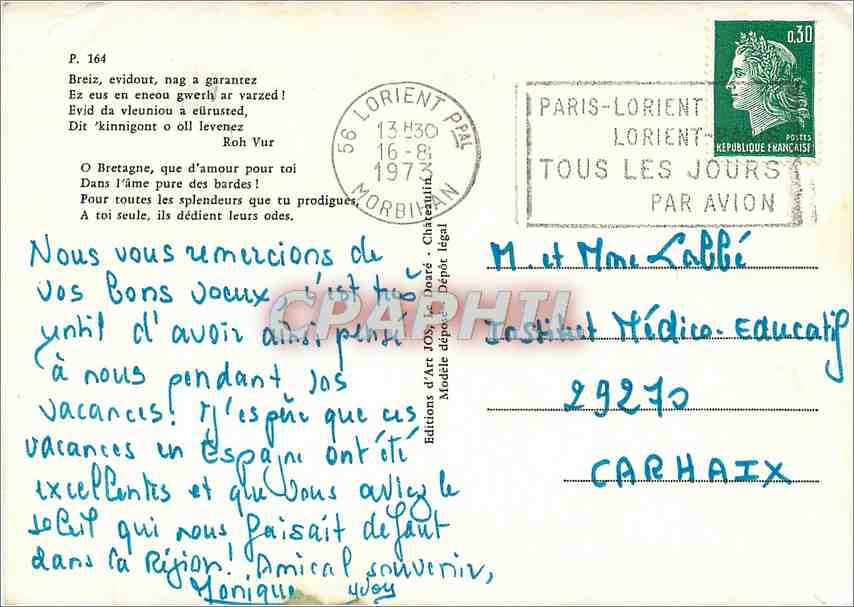 P. 164
Breiz, evidout, nag a garantez
Ez eus en eneou gwerh ar varzed !
Evid da vleuniou a eürusted,
Dit 'kinnigont o oll levenez
Roh Vur
O Bretagne, que d'amour pour toi
Dans l'âme pure des bardes !
Pour toutes les splendeurs que tu prodigues,
A toi seule, ils dédient leurs odes.
56 LORIENT Ppal
13H30
16-8
1973
MORBIHAN
PARIS-LORIENT
LORIENT-
TOUS LES JOURS
PAR AVION
0,30
POSTES
REPUBLIQUE FRANÇAISE
Editions d'Art JOS, Le Doaré - Châteaulin
Modèle déposé - Dépôt légal
CPAPHIL
Nous vous remercions de
vos bons voeux, c'est très
gentil d'avoir ainsi pensé
à nous pendant vos
vacances! J'espère que ces
vacances en Espagne ont été
excellentes et que vous aviez le
soleil qui nous faisait defaut
dans la Région! Amical souvenir,
Monique Yvon
M. et Mme Labbé
Institut Médico-Educatif
29270
CARHAIX